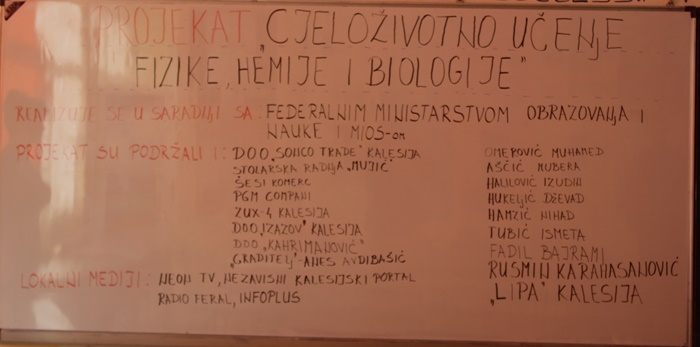 PROJEKAT „CJELOŽIVOTNO UČENJE
FIZIKE, HEMIJE I BIOLOGIJE"
REALIZUJE SE U SARADNJI SA: FEDERALNIM MINISTARSTVOM OBRAZOVANJA I
NAUKE I MIOS-om
PROJEKAT SU PODRŽALI I: DOO „SONCO TRADE" KALESIJA
STOLARSKA RADNJA „MUJIĆ"
ŠESI KOMERC
PGM COMPANI
ZUX-4 KALESIJA
DOO „IZAZOV" KALESIJA
DOO „KAHRIMANOVIĆ"
„GRADITELJ"-ANES AVDIBAŠIĆ
OMEROVIĆ MUHAMED
AŠČIĆ MUBERA
HALILOVIĆ IZUDIN
HUKELJIĆ DŽEVAD
HAMZIĆ NIHAD
TUBIĆ ISMETA
FADIL BAJRAMI
RUSMIN KARAHASANOVIĆ
„LIPA" KALESIJA
LOKALNI MEDIJI: NEON TV, NEZAVISNI KALESIJSKI PORTAL
RADIO FERAL, INFOPLUS